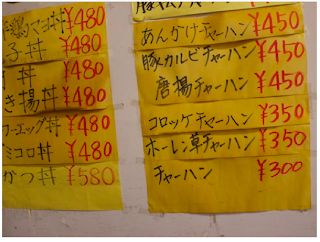 マヨ丼 ¥480
子丼 ¥480
丼 ¥480
き揚丼 ¥480
ーエッグ丼 ¥480
ミコロ丼 ¥480
かつ丼 ¥580
あんかけチャーハン ¥450
豚カルビチャーハン ¥450
唐揚チャーハン ¥450
コロッケチャーハン ¥350
ホーレン草チャーハン ¥350
チャーハン ¥300